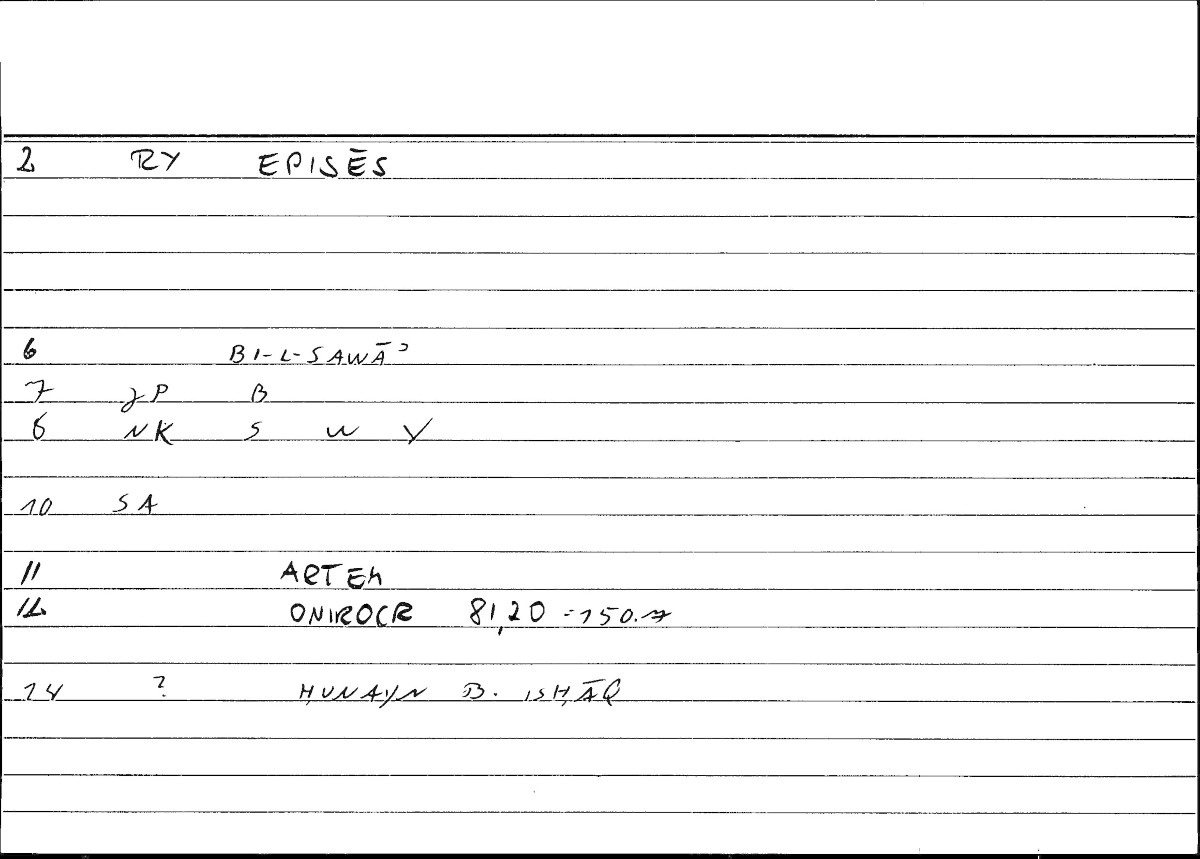 2 RY EPISĒS
6 BI-L-SAWĀʾ
7 JP B
6 NK S W V
10 SA
11 ARTEM
12 ONIROCR 81,20 - 150.7
14 ? ḤUNAYN B. ISḤĀQ